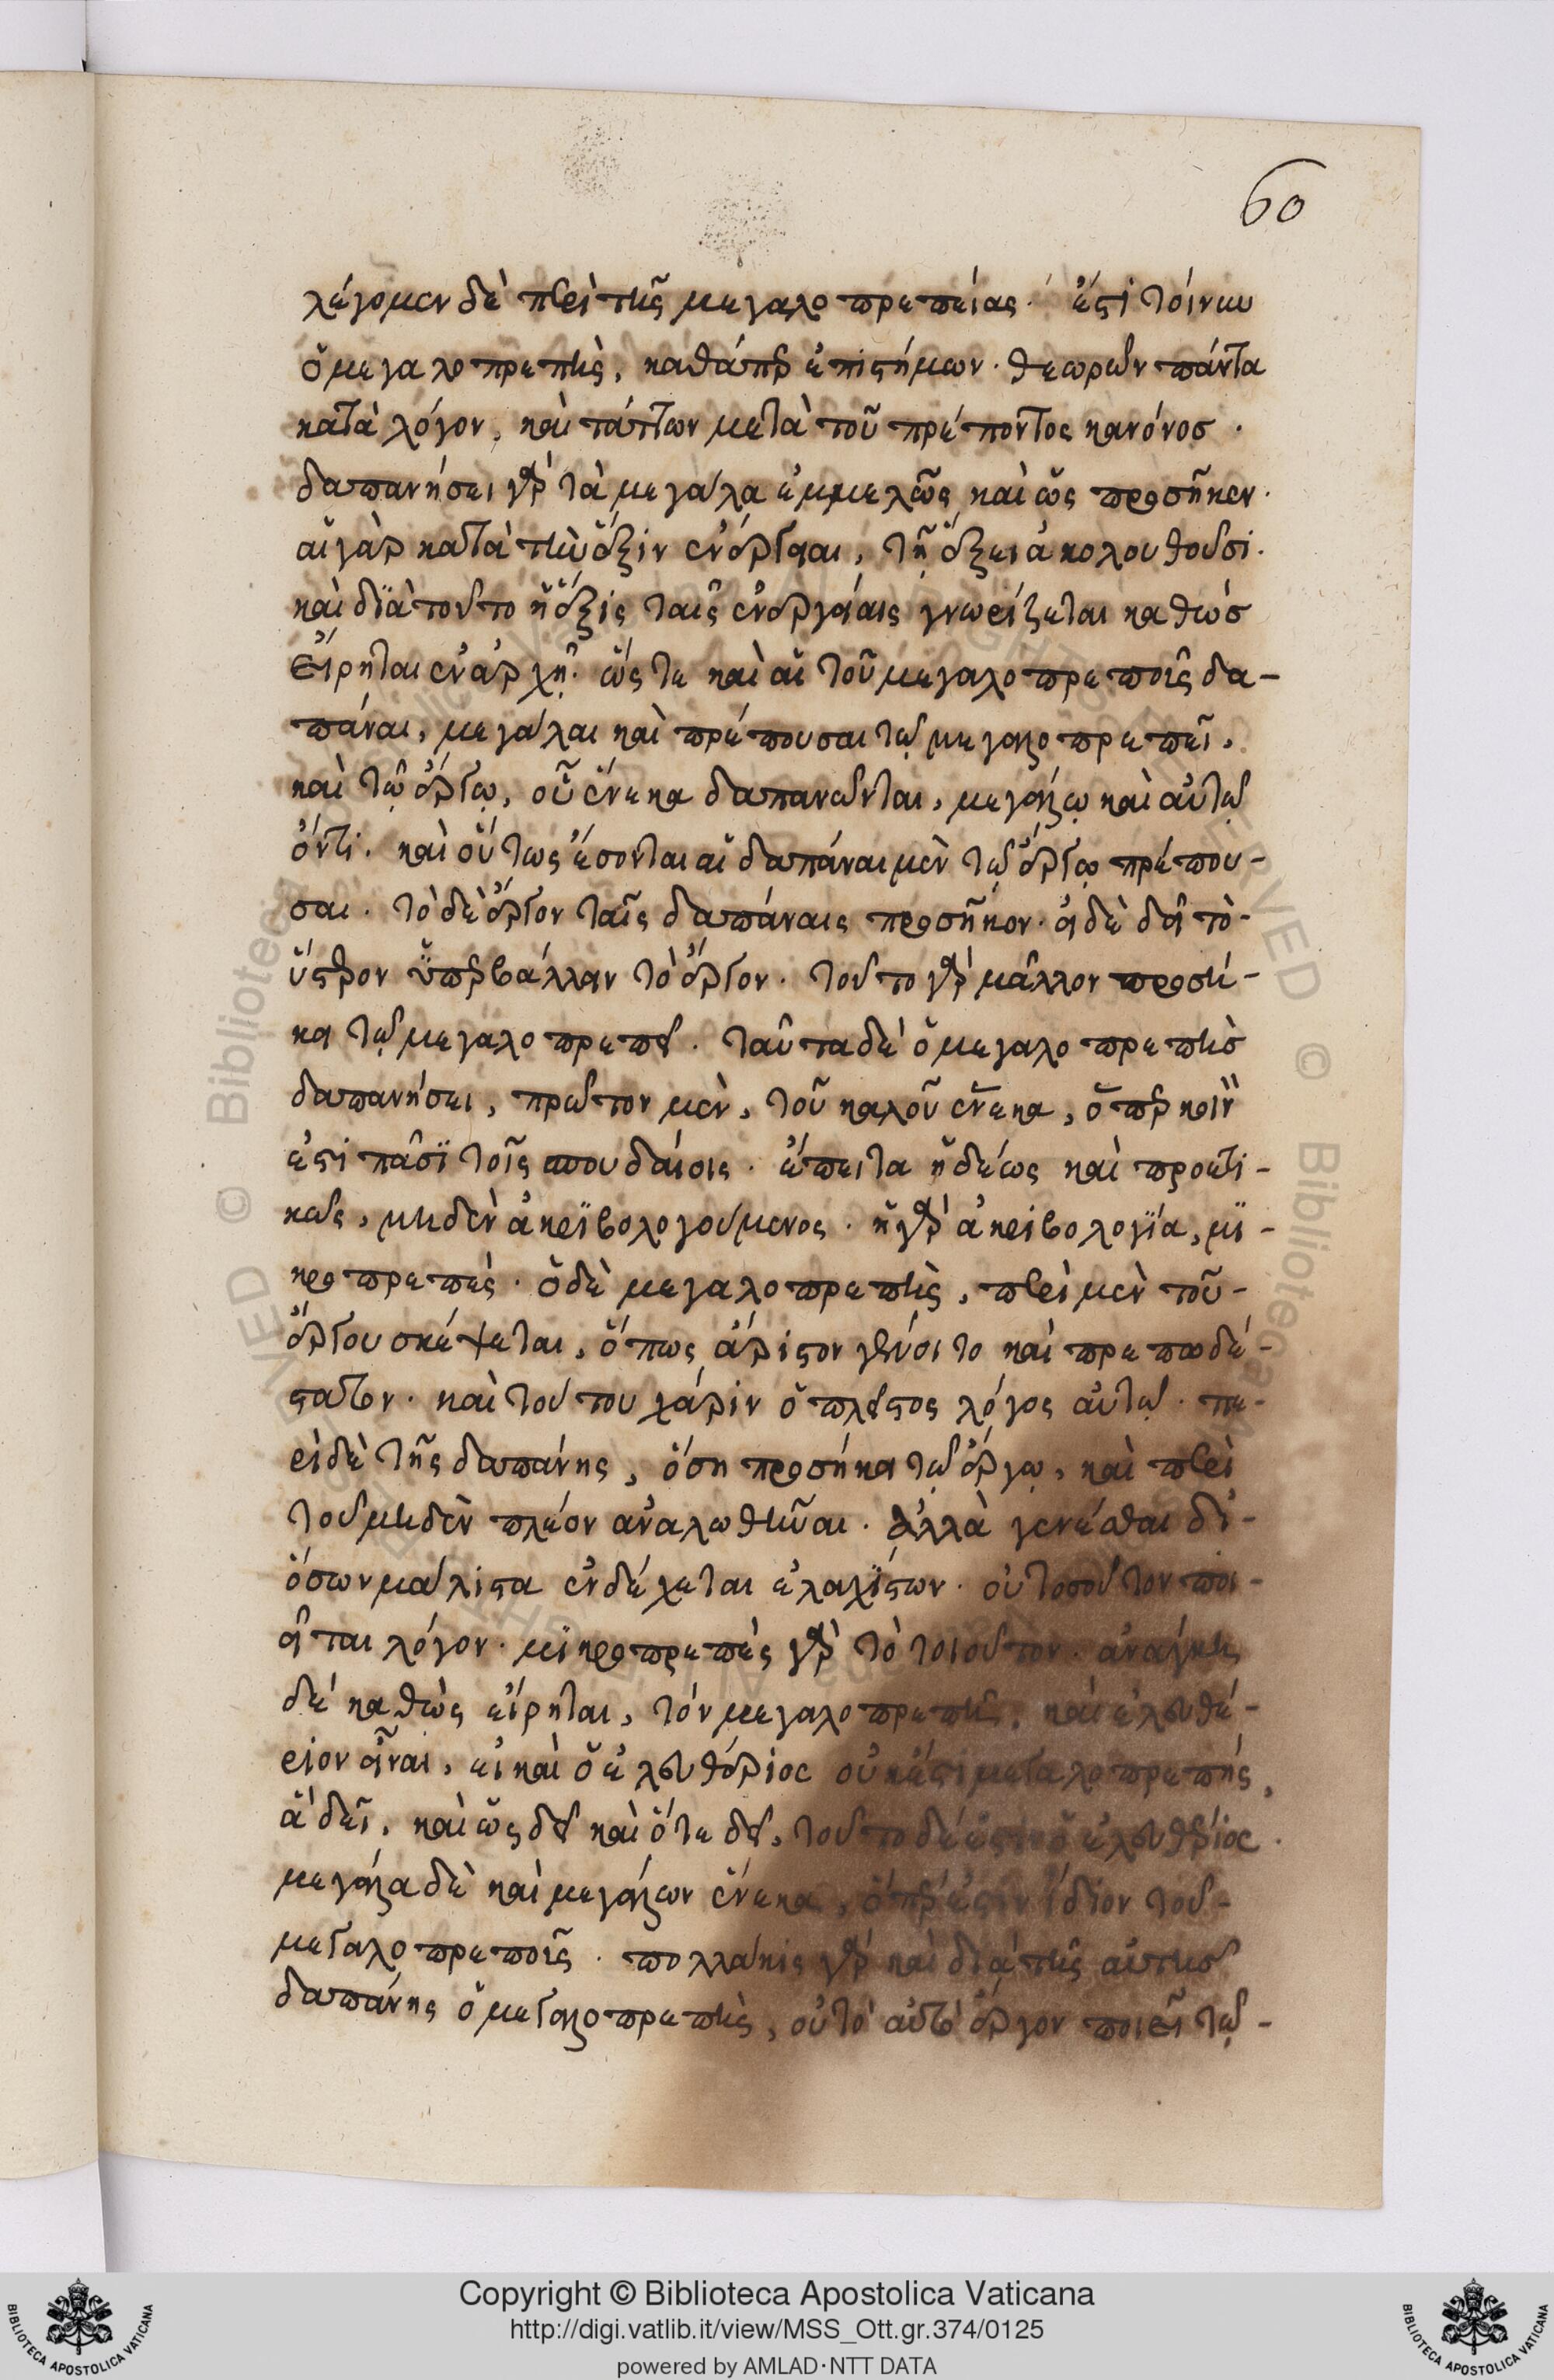 60
λέγομεν δὲ περὶ τῆς μεγαλοπρεπείας· ἔστι τοίνυν
ὁ μεγαλοπρεπὴς, καθάπερ ἐπιστήμων· θεωρῶν πάντα
κατὰ λόγον, καὶ τάττων μετὰ τοῦ πρέποντος κανόνος·
δαπανήσει γὰρ τὰ μεγάλα ἐμμελῶς καὶ ὡς προσῆκεν·
αἱ γὰρ κατὰ τὴν ἕξιν ἐνέργειαι, τῇ ἕξει ἀκολουθοῦσι·
καὶ διὰ τοῦτο ἡ ἕξις ταῖς ἐνεργείαις γνωρίζεται καθὼς
εἴρηται ἐν ἀρχῇ· ὥστε καὶ αἱ τοῦ μεγαλοπρεποῦς δα-
πάναι, μεγάλαι καὶ πρέπουσαι τῷ μεγαλοπρεπεῖ,
καὶ τῷ ἔργῳ, οὗ ἕνεκα δαπανῶνται, μεγάλῳ καὶ αὐτῷ
ὄντι· καὶ οὕτως ἔσονται αἱ δαπάναι μὲν τῷ ἔργῳ πρέπου-
σαι· τὸ δὲ ἔργον ταῖς δαπάναις προσῆκον· εἰ δὲ δεῖ τὸ-
ὕστερον ὑπερβάλλειν τὸ ἔργον· τοῦτο γὰρ μᾶλλον προσή-
κει τῷ μεγαλοπρεπεῖ· ταῦτα δὲ ὁ μεγαλοπρεπὴς
δαπανήσει, πρῶτον μὲν, τοῦ καλοῦ ἕνεκα, ὅπερ κοιν
ἐστὶ πᾶσι τοῖς σπουδαίοις· ἔπειτα ἡδέως καὶ προετι-
κῶς, μηδὲν ἀκριβολογούμενος· ἡ γὰρ ἀκριβολογία, μι-
κροπρεπές· ὁ δὲ μεγαλοπρεπὴς, περὶ μὲν τοῦ-
ἔργου σκέψεται, ὅπως ἄριστον γένοιτο καὶ πρεπωδέ-
στατον· καὶ τούτου χάριν ὁ πλεῖστος λόγος αὐτῷ· πε-
ρὶ δὲ τῆς δαπάνης, ὅση προσήκει τῷ ἔργῳ, καὶ περὶ
τοῦ μηδὲν πλέον ἀναλωθῆναι· ἀλλὰ γενέσθαι δι'-
ὅσων μάλιστα ἐνδέχεται ἐλαχίστων· οὐ τοσοῦτον ποι-
εῖται λόγον· μικροπρεπὲς γὰρ τὸ τοιοῦτον· ἀνάγκη
δέ καθὼς εἴρηται, τὸν μεγαλοπρεπῆ, καὶ ἐλευθέ-
ριον εἶναι, εἰ καὶ ὁ ἐλευθέριος οὐκ ἔστι μεγαλοπρεπής,
ἃ δεῖ, καὶ ὡς δεῖ καὶ ὅτε δεῖ, τοῦτο δέ ἐστιν ὁ ἐλευθέριος·
μεγάλα δὲ καὶ μεγάλων ἕνεκα, ὅπερ ἐστὶν ἴδιον τοῦ-
μεγαλοπρεποῦς· πολλάκις γὰρ καὶ διὰ τῆς αὐτῆς
δαπάνης ὁ μεγαλοπρεπὴς, οὐ τὸ αὐτὸ ἔργον ποιεῖ τῷ-
Copyright © Biblioteca Apostolica Vaticana
http://digi.vatlib.it/view/MSS_Ott.gr.374/0125
powered by AMLAD·NTT DATA